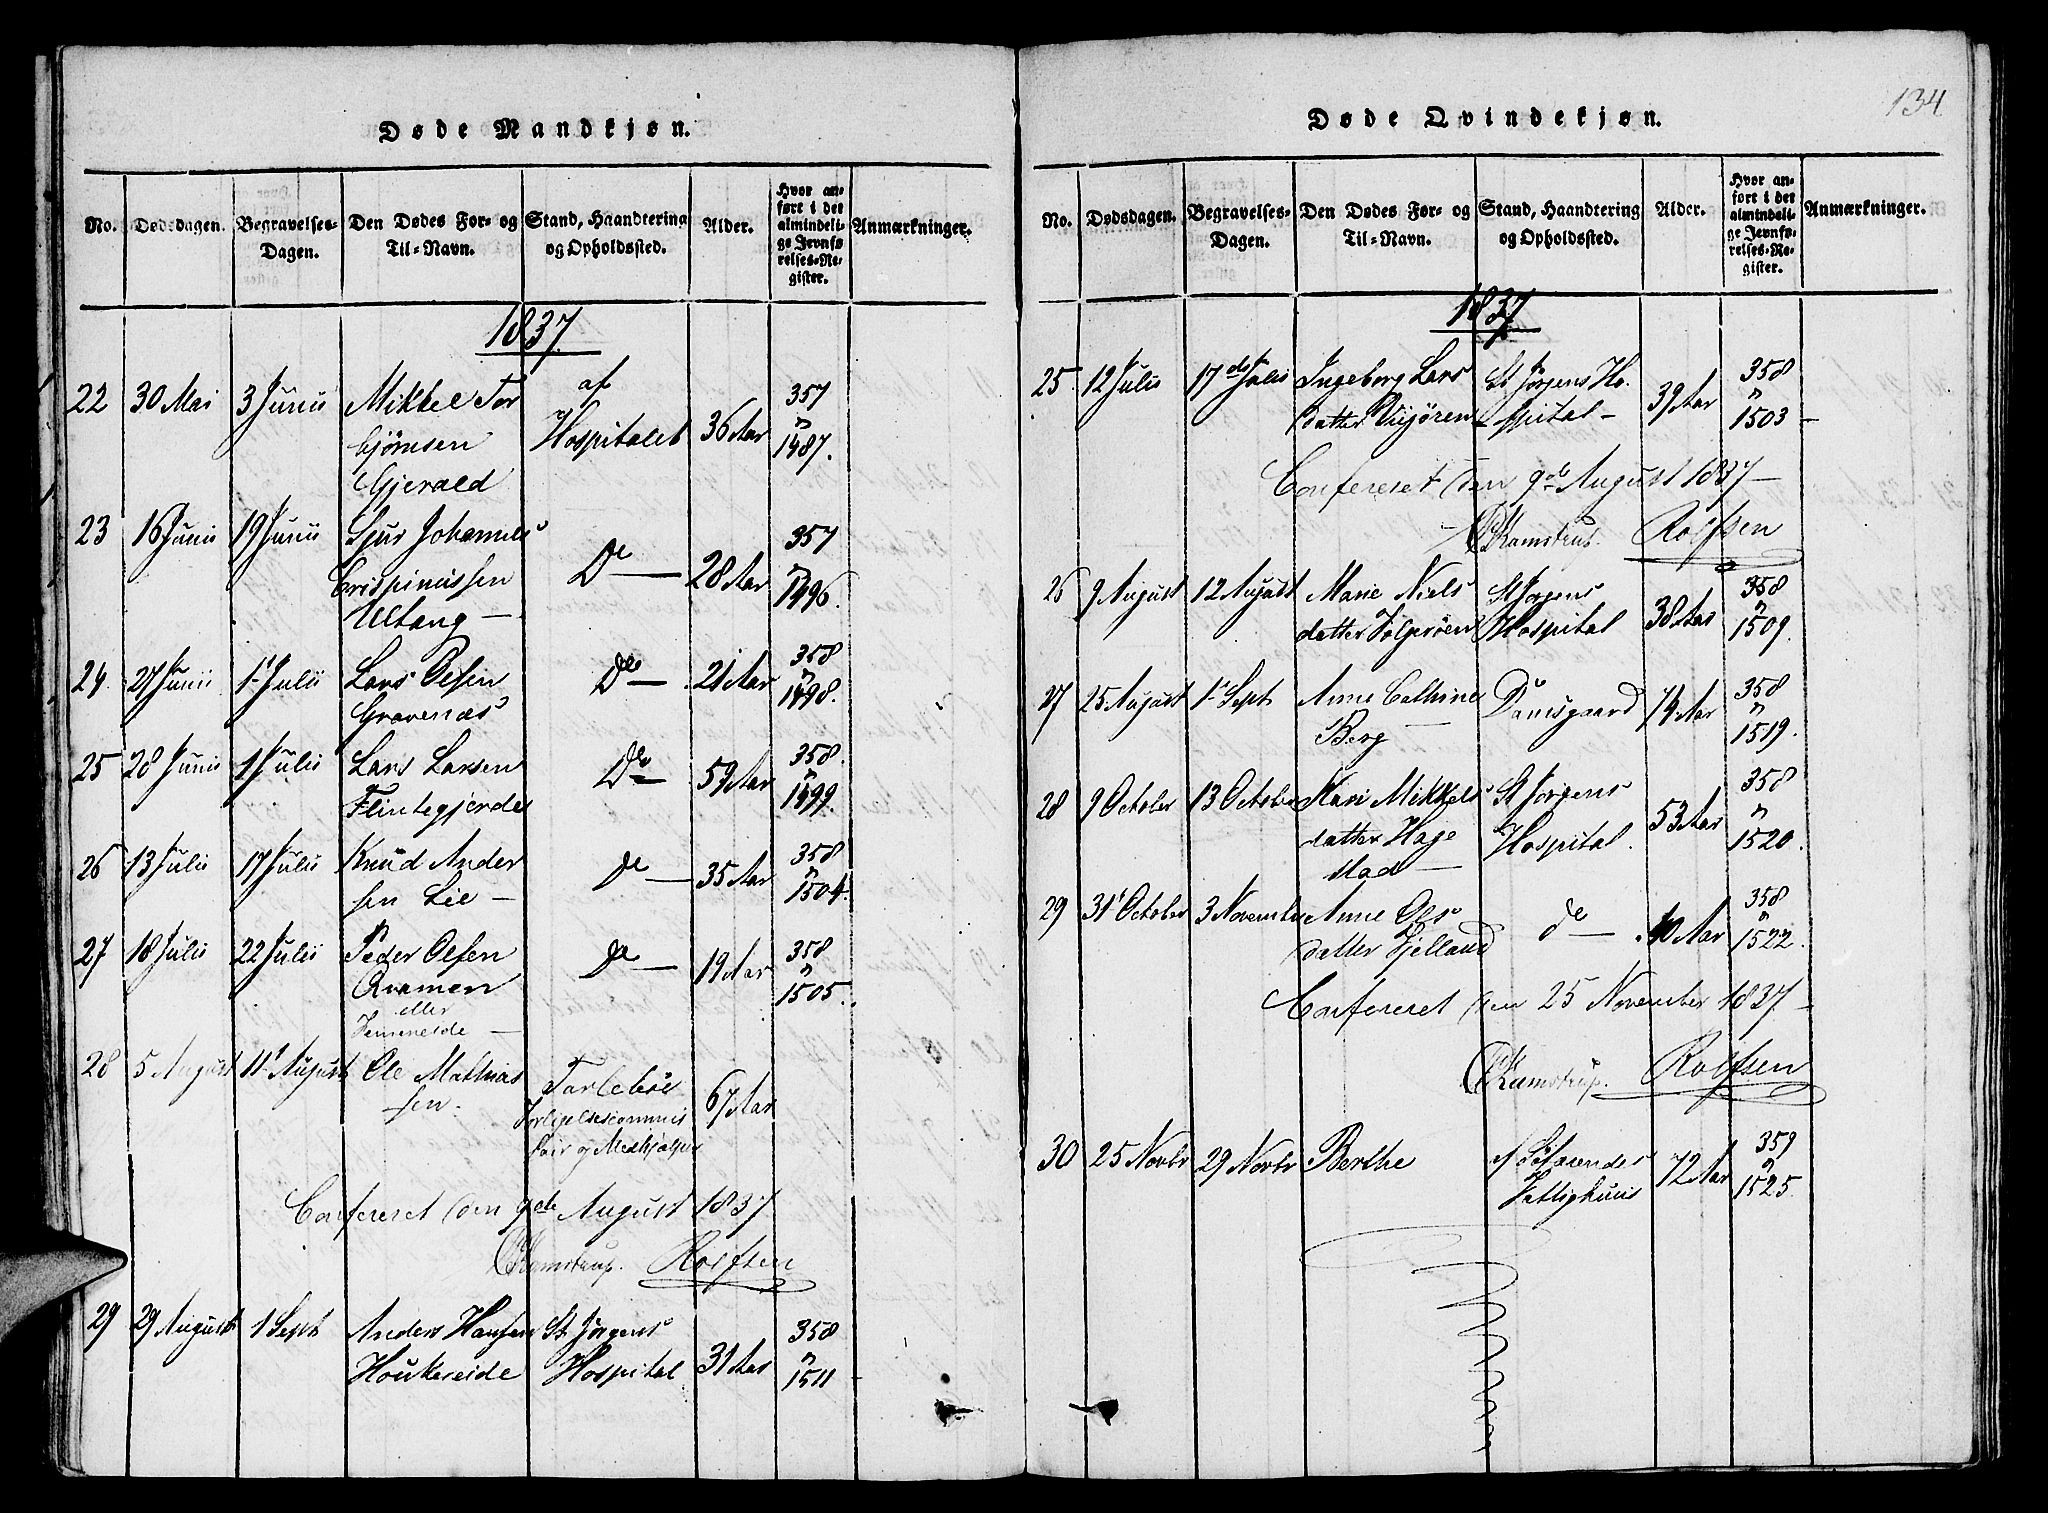 Døde Mandkjøn.
No. Dødsdagen. Begravelses-Dagen. Den Dødes For- og Til-Navn. Stand, Haandtering og Opholdssted. Alder. Hvor anført i det almindelige Jevnførelses-Register. Anmærkninger.
1837.
22 30 Mai 3 Junii Mikkel Tor af 36 Aar 357
bjørnsen Hospitalet n
Gjerald 1487.
23 16 Junii 19 Junii Sjur Johannes De — 28 Aar 357
Crispinussen n
Utang — 1496.
24. 27 Junii 1 Julii Lars Olsen De — 21 Aar 358
Gravenæs n
1498.
25 28 Junii 1 Julii Lars Larsen De 59 Aar 358.
Flintegjerde n
1499.
26 13 Julii 17 Julii Knud Ander De — 35 Aar 358
sen Lie — n
1504.
27 18 Julii 22 Julii Peder Olsen De — 19 Aar 358
Qvamen n
eller 1505.
28 5 August 11 August Ole Mathias Tarlebøe 67 Aar
sen.
og Medhjelper
Conferert den 9de August 1837
Kamstrup. Rolfsen
29 29 August 1 Sept Anders Hansen St Jørgens 31 Aar 358
Houkereide Hospital n
1511
134
Døde Qvindekjøn.
No. Dødsdagen. Begravelses-Dagen. Den Dødes For- og Til-Navn. Stand, Haandtering og Opholdssted. Alder. Hvor anført i det almindelige Jevnførelses-Register. Anmærkninger.
1837
25. 12 Julii 17de Julii Ingeborg Lars St Jørgens Ho- 39 Aar 358
datter spital — n
1503 —
Conferert den 9de August 1837 —
Kamstrup. Rolfsen
26 9 August 12 August Marie Niels St Jørgens 38 Aar 358
datter Hospital n
1509.
27 25 August 1 Sept Anne Cathrine Damsgaard 74 Aar 358
Berg — n
1519.
28 9 October 13 October Kari Mikkels St Jørgens 53 Aar 358
datter Hage Hospital. n
stad — 1520.
29 31 October 3 November Anne Ols de — 40 Aar 358
datter Gjelland n
1522.
Conferert den 25 November 1837 —
Kamstrup. Rolfsen
30 25 Novbr 29 Novbr Berthe Søfarendes 72 Aar 359
Fattighuus n
1525.